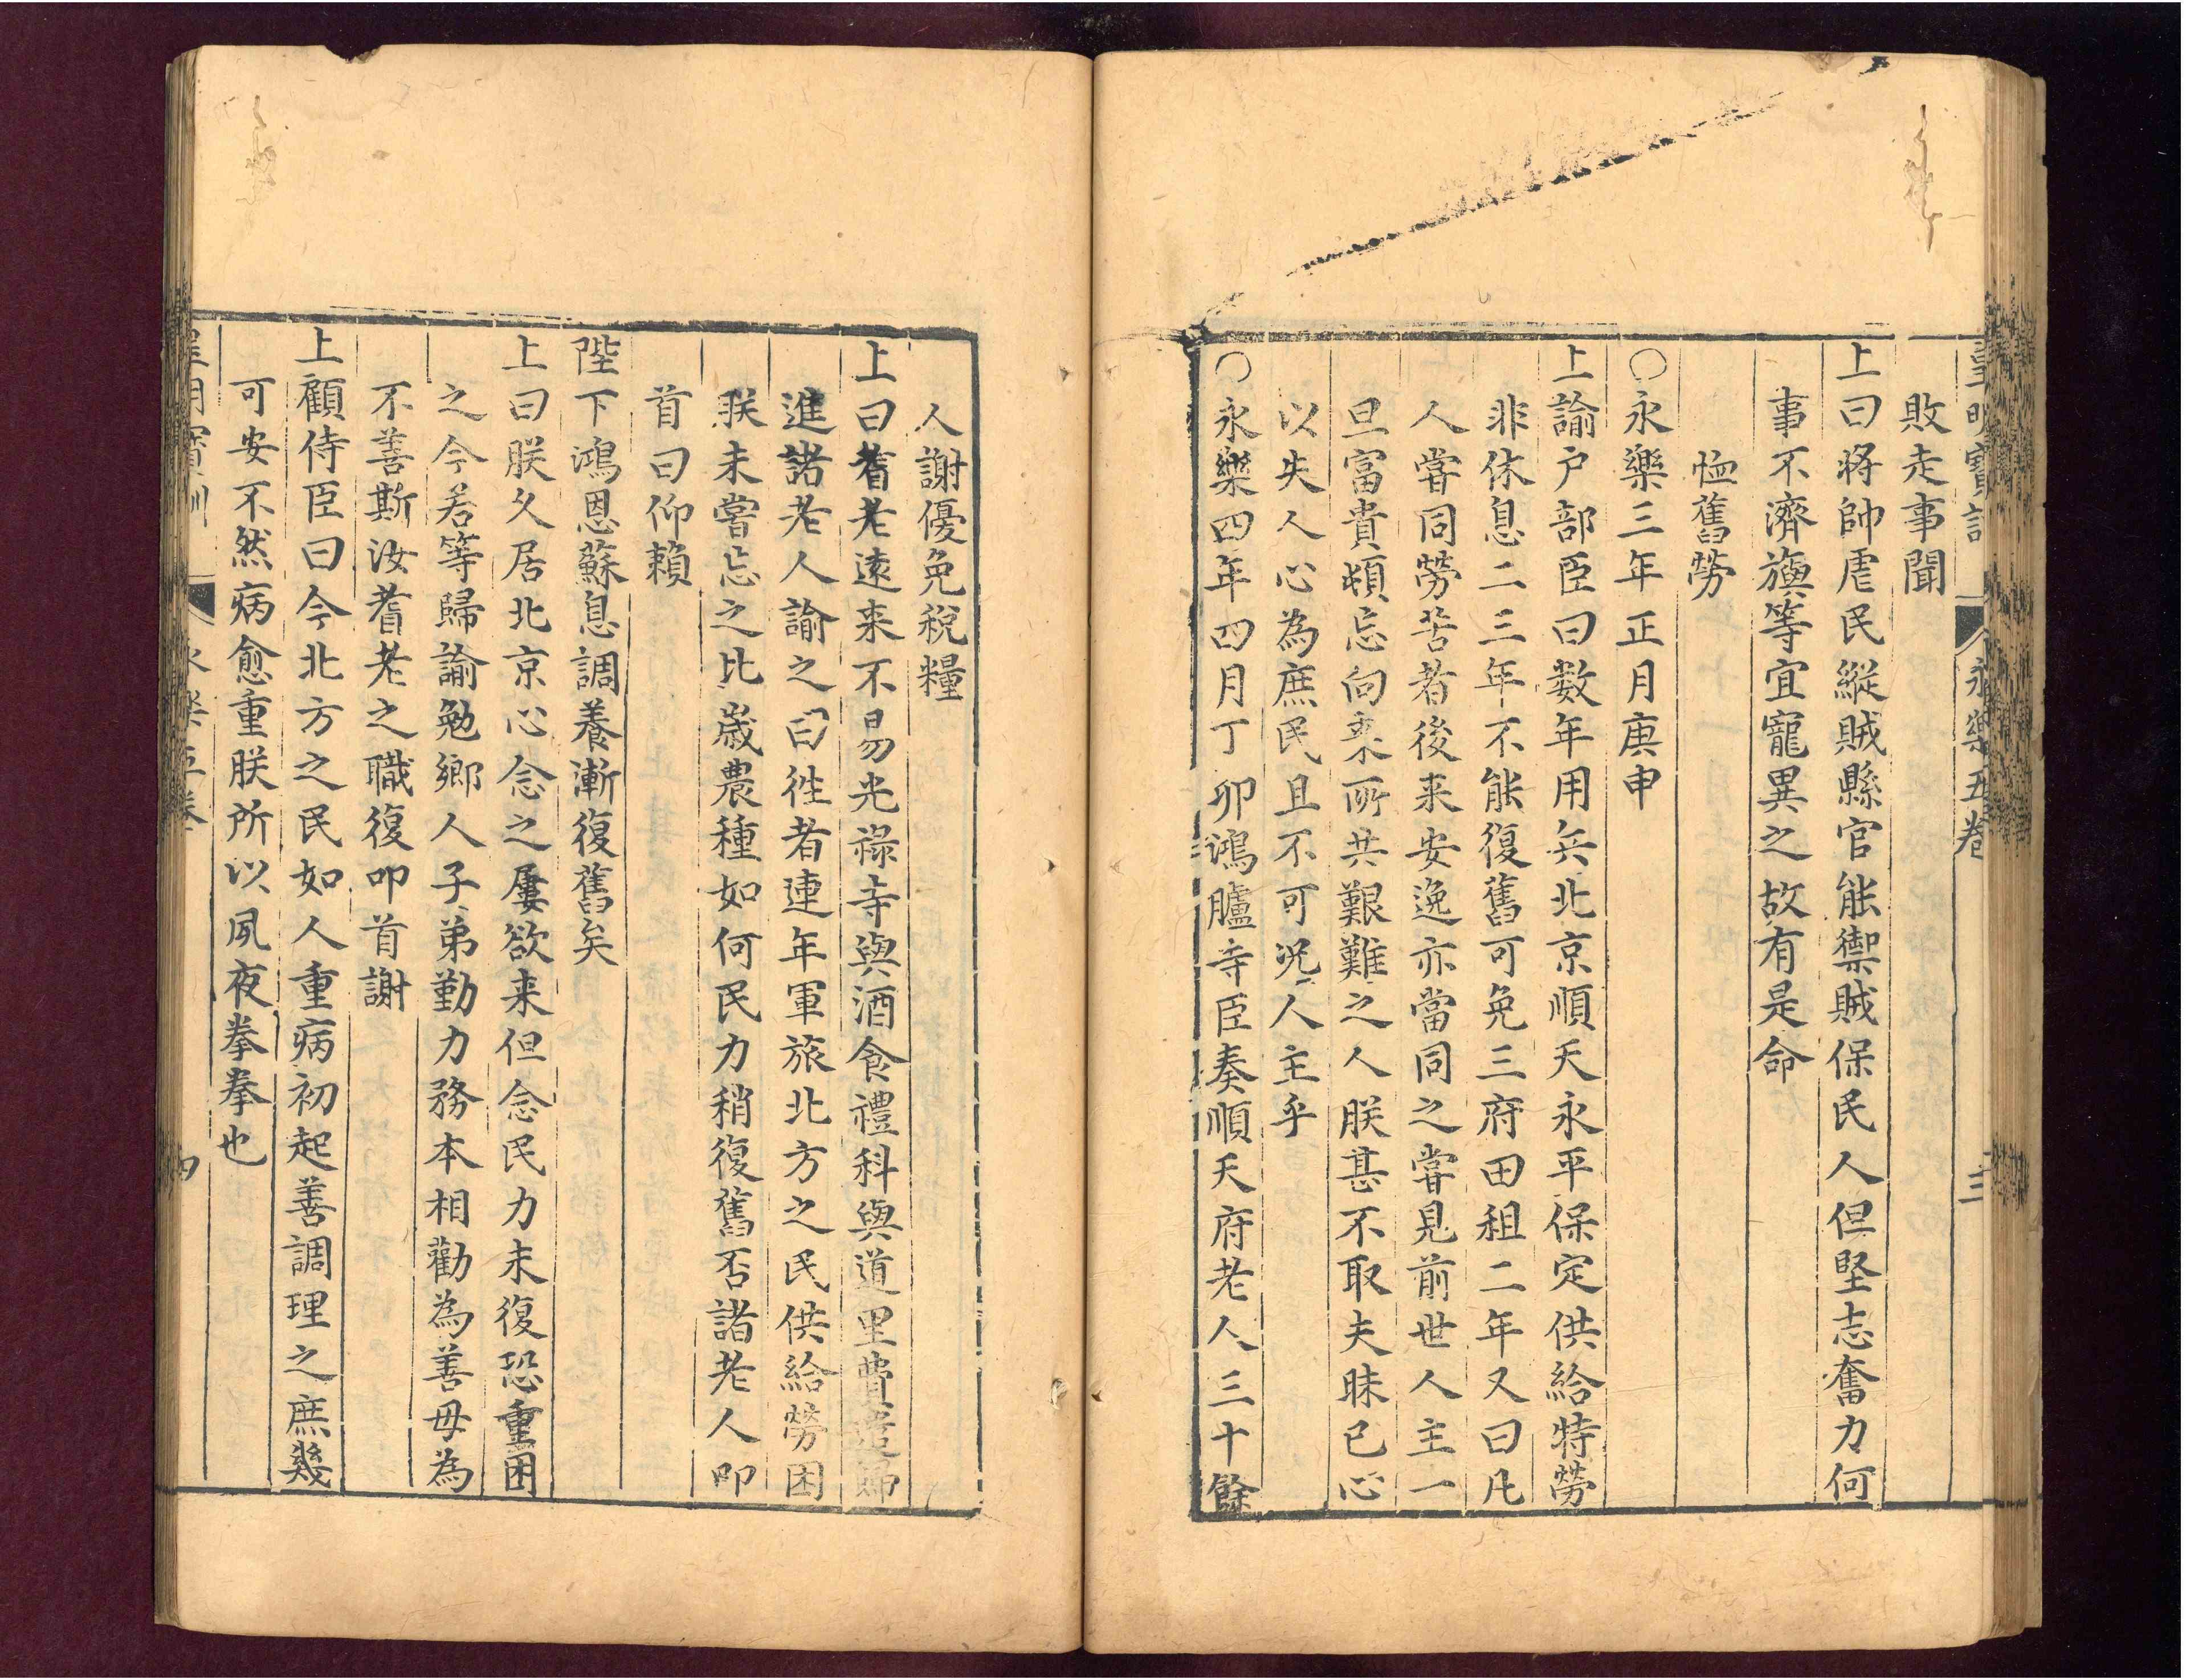 皇明寶訓 永樂五卷 三
敗走事聞
上曰將帥虐民縱賊縣官能禦賊保民人但堅志奮力何
事不濟旟等宜寵異之故有是命
恤舊勞
○永樂三年正月庚申
上諭户部臣曰数年用兵北京順天永平保定供給特勞
非休息二三年不能復舊可免三府田租二年又曰凡
人嘗同勞苦者後来安逸亦當同之嘗見前世人主一
旦富貴頓忘向来所共艱難之人朕甚不取夫昧己心
以失人心為庶民且不可况人主乎
○永樂四年四月丁卯鴻臚寺臣奏順天府老人三十餘
人謝優免稅糧
上曰耆老遠来不易光祿寺與酒食禮科與道里費遣歸
進諸老人諭之曰徃者連年軍旅北方之民供給勞困
朕未嘗忘之比歲農種如何民力稍復舊否諸老人叩
首曰仰賴
陛下鴻恩蘇息調養漸復舊矣
上曰朕久居北京心念之屢欲来但念民力未復恐重困
之今若等歸諭勉鄉人子弟勤力務本相勸為善毋為
不善斯汝耆老之職復叩首謝
上顧侍臣曰今北方之民如人重病初起善調理之庶幾
可安不然病愈重朕所以夙夜拳拳也
皇明寶訓 永樂五卷 四